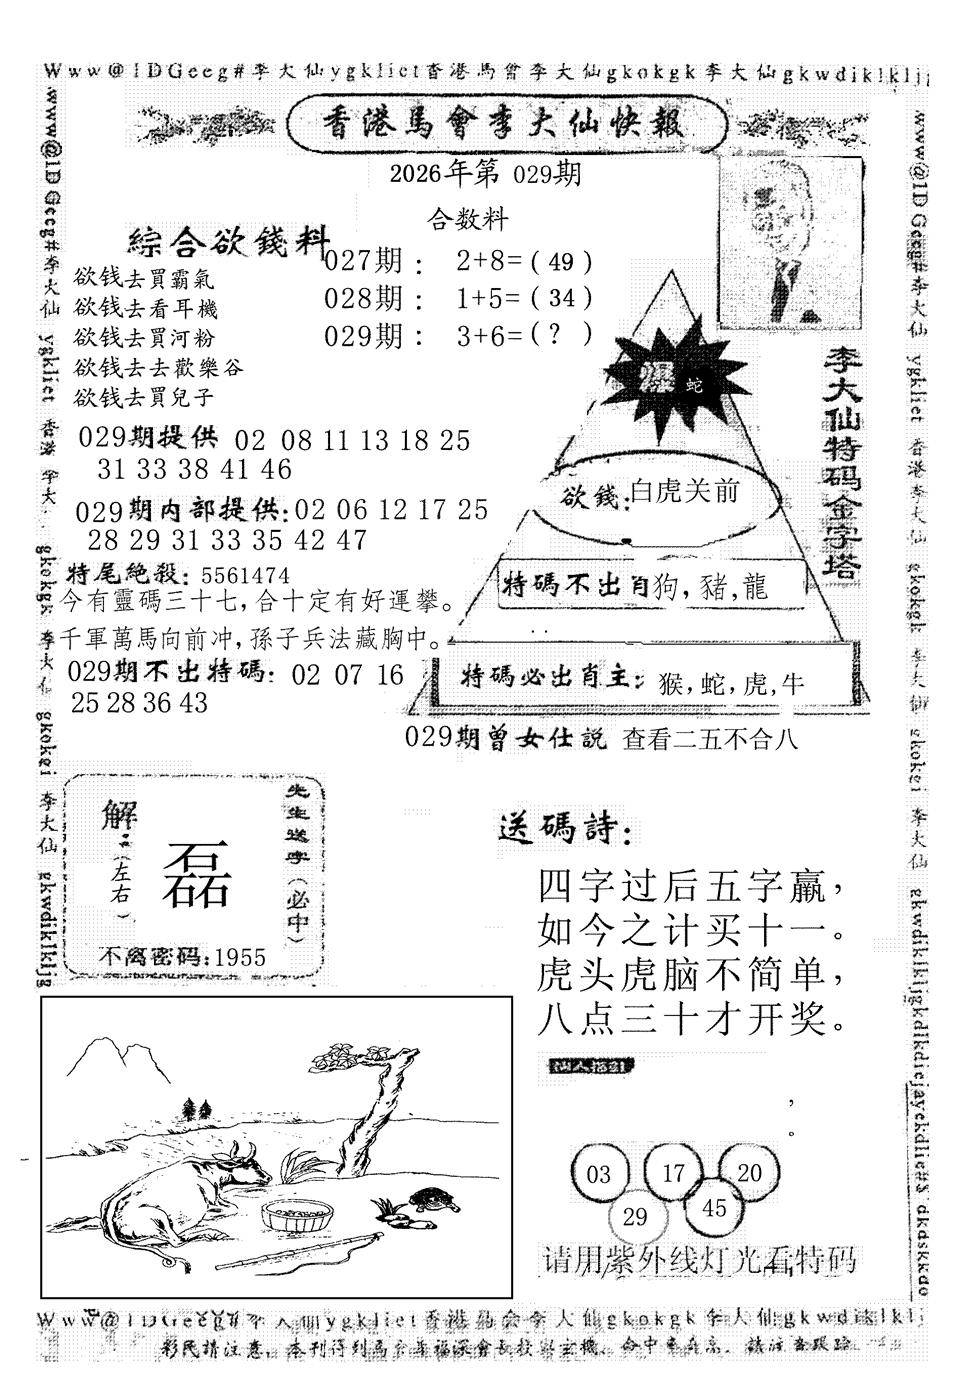 Www@1DGeeg#李大仙ygkliet香港馬會李大仙gkokgk李大仙gkwdiklkljg
香港馬會李大仙快報
2026年第 029期
合数料
綜合欲錢料
欲钱去買霸氣
欲钱去看耳機
欲钱去買河粉
欲钱去去歡樂谷
欲钱去買兒子
027期： 2+8=( 49 )
028期： 1+5=( 34 )
029期： 3+6=( ? )
029期提供 02 08 11 13 18 25
31 33 38 41 46
029期内部提供:02 06 12 17 25
28 29 31 33 35 42 47
特尾絶殺: 5561474
今有靈碼三十七,合十定有好運攀。
千軍萬馬向前冲,孫子兵法藏胸中。
029期不出特碼: 02 07 16
25 28 36 43
李大仙特码金字塔
爆 蛇
欲錢:白虎关前
特碼不出肖狗,豬,龍
特碼必出肖主: 猴,蛇,虎,牛
029期曾女仕説 查看二五不合八
先生送字(必中)
解:
(左右)
磊
不离密码:1955
送碼詩:
四字过后五字赢，
如今之计买十一。
虎头虎脑不简单，
八点三十才开奖。
，
。
03 17 20
29 45
请用紫外线灯光看特码
www@1DGeeg#李大仙 ygkliet 香港 李大 gkokgk 李大 gkokei 李大仙 gkwdiklkljg
www@1DGeeg#李大仙 ygkliet 香港李大仙 gkokgk 李大仙 gkokei 李大仙 gkwdiklkljgkdlkdiejayekdlie#$ dkdskkdo
Www@1DGeeg#李大仙ygkliet香港馬会李大仙gkokgk李大仙gkwdiklklj
彩民請注意